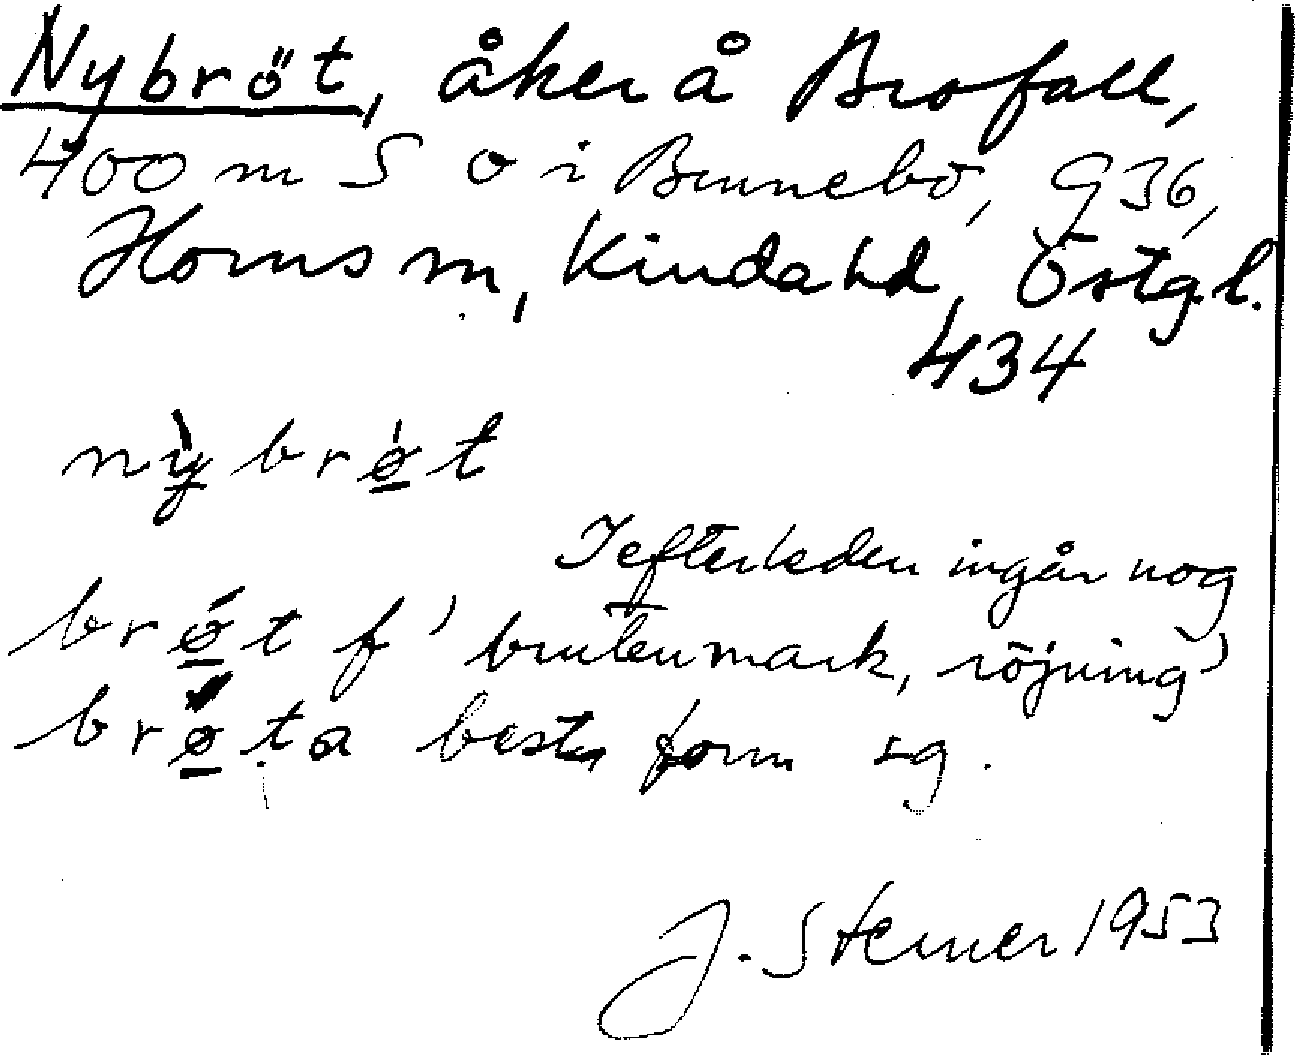 Nybröt, åker å Brofall,
400 m S o i Bunnebo, 936,
Horns sn, Kinda hd, Östg.l.
434
nỳbrǿt
I efterleden ingår nog
brǿt f 'bruten mark, röjning'
brǿta best. form sg.
J. Sterner 1953